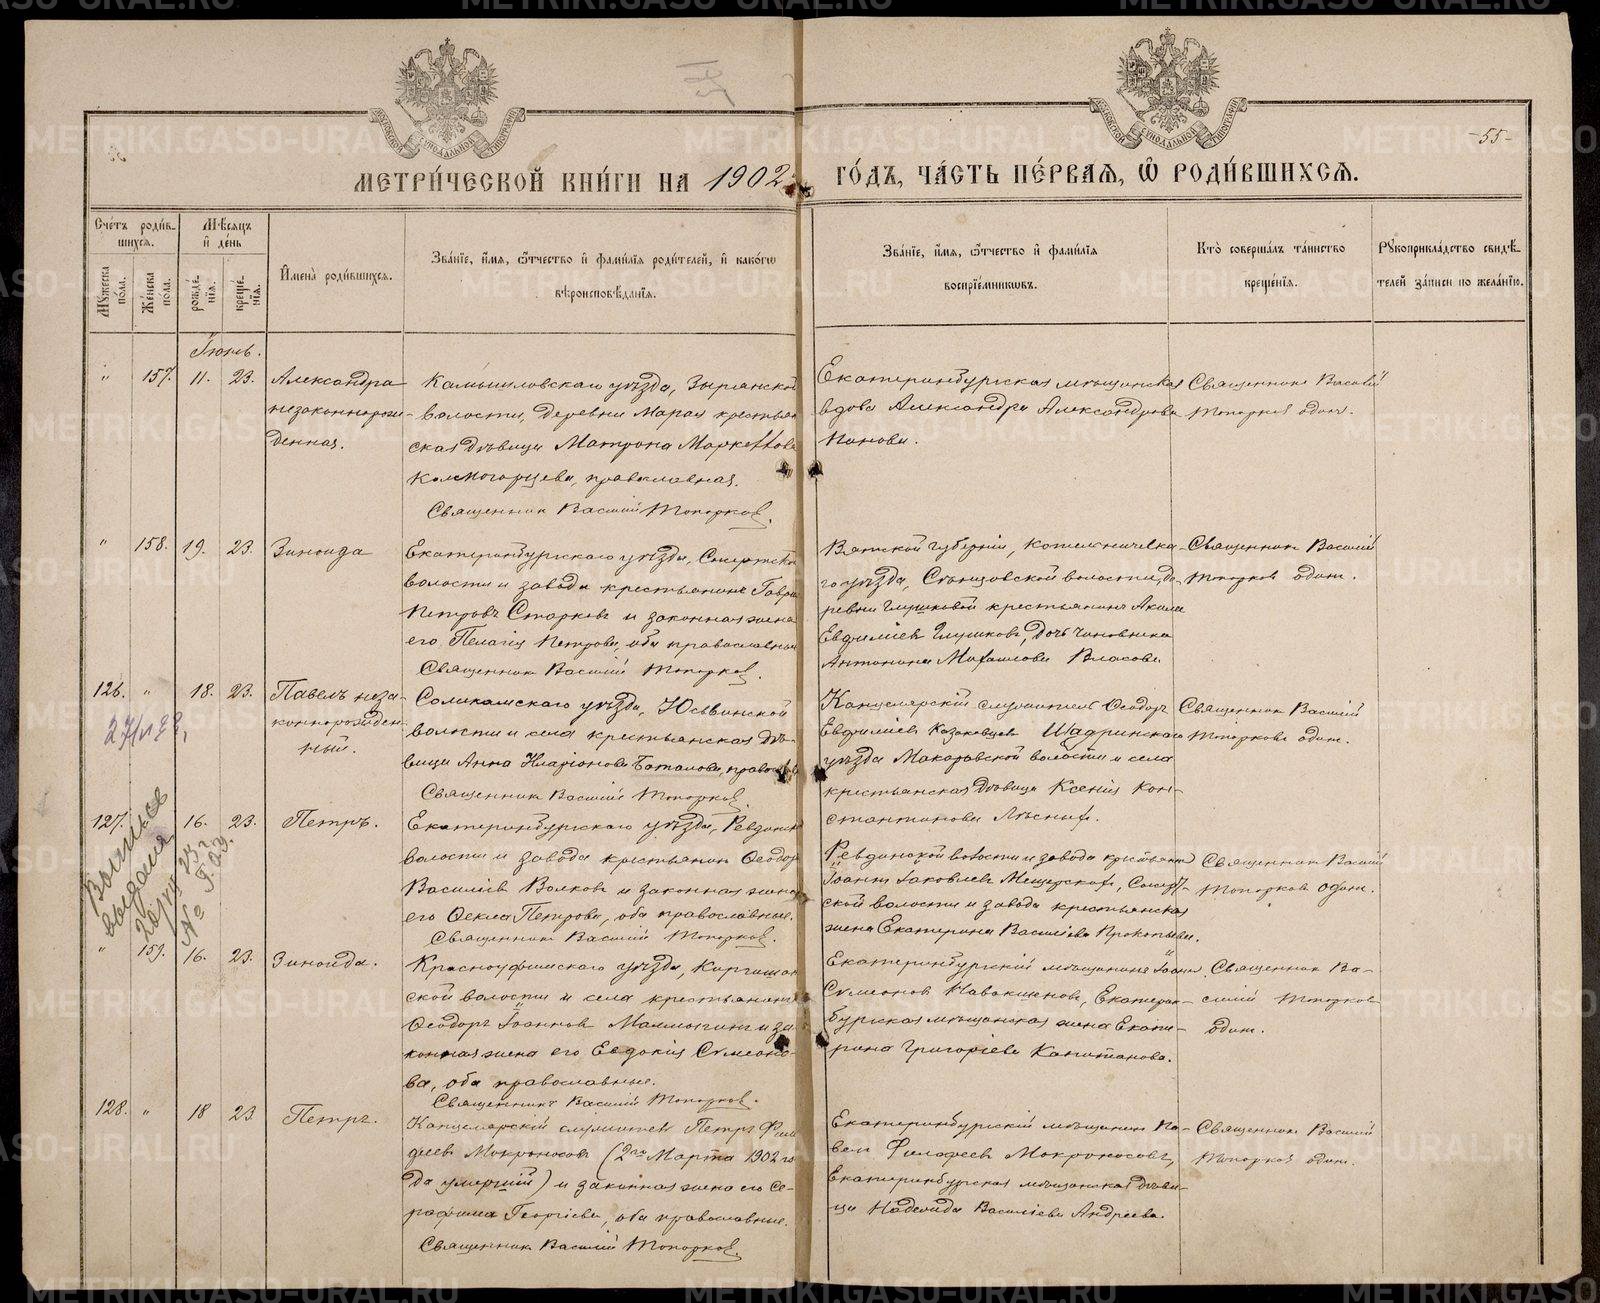 -55-
МЕТРИ́ЧЕСКОЙ КНИ́ГИ НА 1902 ГО́ДЪ, ЧА́СТЬ ПЕ́РВАЯ, Ѡ҆ РОДИ́ВШИХСЯ.
Сче́тъ роди́в-
шихся.
Мѣ́сяцъ
и҆ де́нь
Мꙋ́жеска
по́ла.
Же́нска
по́ла.
рожде́-
нїя.
креще́-
нїя.
И҆мена̀ роди́вшихся.
Зва́нїе, и҆́мя, ѻ҆́тчество и҆ фами́лїя роди́телей, и҆ како́гѡ
вѣроисповѣ́данїя.
Зва́нїе, и҆́мя, ѻ҆́тчество и҆ фами́лїя
воспрїе́мникѡвъ.
Кто̀ соверша́лъ та́инство
креще́нїя.
Рꙋкоприкла́дство свидѣ́-
телей за́писи по жела́нїю.
Іюнь.
" 157. 11. 23.
Александра
незаконнорож-
денная.
Камышловскаго уѣзда, Зырянской
волости, деревни Марай крестьян
ская дѣвица Матрона
Колмогорцева, православная.
Священник Василий Топорков.
Екатеринбургская мѣщанская
вдова Александра Александрова
Панова.
Священник Василий
Топорков одинъ.
" 158. 19. 23.
Зинаида
Екатеринбургскаго уѣзда,
волости и завода крестьянинъ
Петровъ Старковъ и законная жена
его Пелагія Петрова, оба православные
Священник Василий Топорков.
Вятской губерніи, Котельническа-
го уѣзда, волости, де-
ревни Глушковой крестьянинъ
Евфиміев Глушковъ, дочь чиновника
Антонина Михаилова Власова.
Священник Василий
Топорков один.
126. " 18. 23.
Павелъ неза-
коннорожден-
ный.
Соликамскаго уѣзда, Юсьвинской
волости и села крестьянская дѣ-
вица Анна Иларіонова Баталова, православ
Священник Василий Топорков.
Канцелярскій служитель Ѳеодоръ
Евфиміев Казаковцев Шадринскаго
уѣзда Макаровской волости и села
крестьянская дѣвица Ксенія Кон-
стантинова
Священник Василий
Топорков один.
127. 16. 23.
Петръ.
Выпись
выдана
№
Екатеринбургскаго уѣзда, Ревдинск
волости и завода крестьянин Ѳеодор
Василіев Волков и законная жена
его Ѳекла Петрова, оба православные.
Священник Василий Топорков.
Ревдинской волости и завода крестьянин
Іоанн Іаковлев
ской волости и завода крестьянская
жена Екатерина Василіева Прокопьева.
Священник Василий
Топорков один.
" 159. 16. 23.
Зинаида.
Красноуфимскаго уѣзда, Киргишан
ской волости и села крестьянинъ
Ѳеодоръ Іоаннов и за
конная жена его Евдокія Сѵмеоно-
ва, оба православные.
Священникъ Василий Топорков.
Екатеринбургскій мѣщанинъ Іоанн
Сѵмеонов Екатерин-
бургская мѣщанская жена Екате-
рина Григоріева Капитанова.
Священник Ва-
силий Топорков
один.
128. " 18 23
Петръ.
Канцелярскій служитель Петръ Фила
феев Мокроносовъ (2го Марта 1902 го
да умершій) и законная жена его Се-
рафима Георгіева, оба православные.
Священник Василий Топорков.
Екатеринбургскій мѣщанин Па-
вел Филафеев Мокроносовъ,
Екатеринбургская мѣщанская дѣви-
ца Надежда Василіева Андреева.
Священник Василий
Топорков один.
METRIKI.GASO-URAL.RU